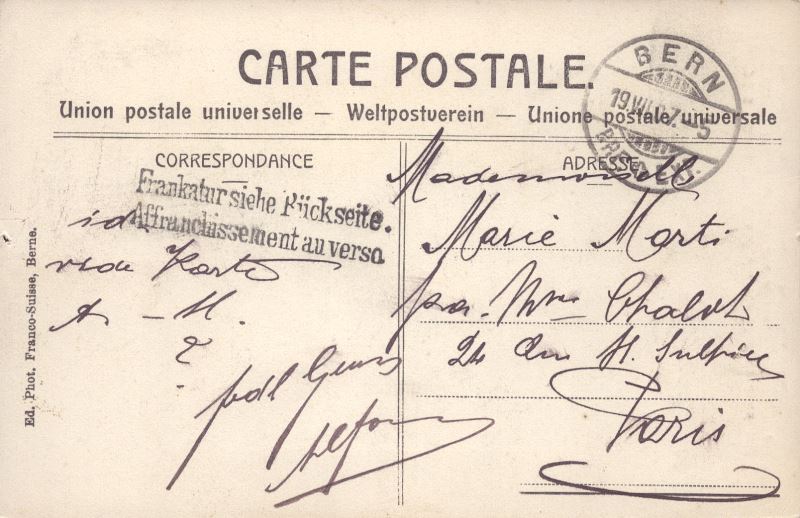 CARTE POSTALE.
Union postale universelle — Weltpostverein — Unione postale universale
BERN
19.VII.07. 5
CORRESPONDANCE
Frankatur siehe Rückseite.
Affranchissement au verso
Karte
A. – M.
?
ADRESSE
Mademoisell
Marie Marti
Mme Chalot
24 St. Sulpice
Paris
Ed. Phot. Franco-Suisse, Berne.